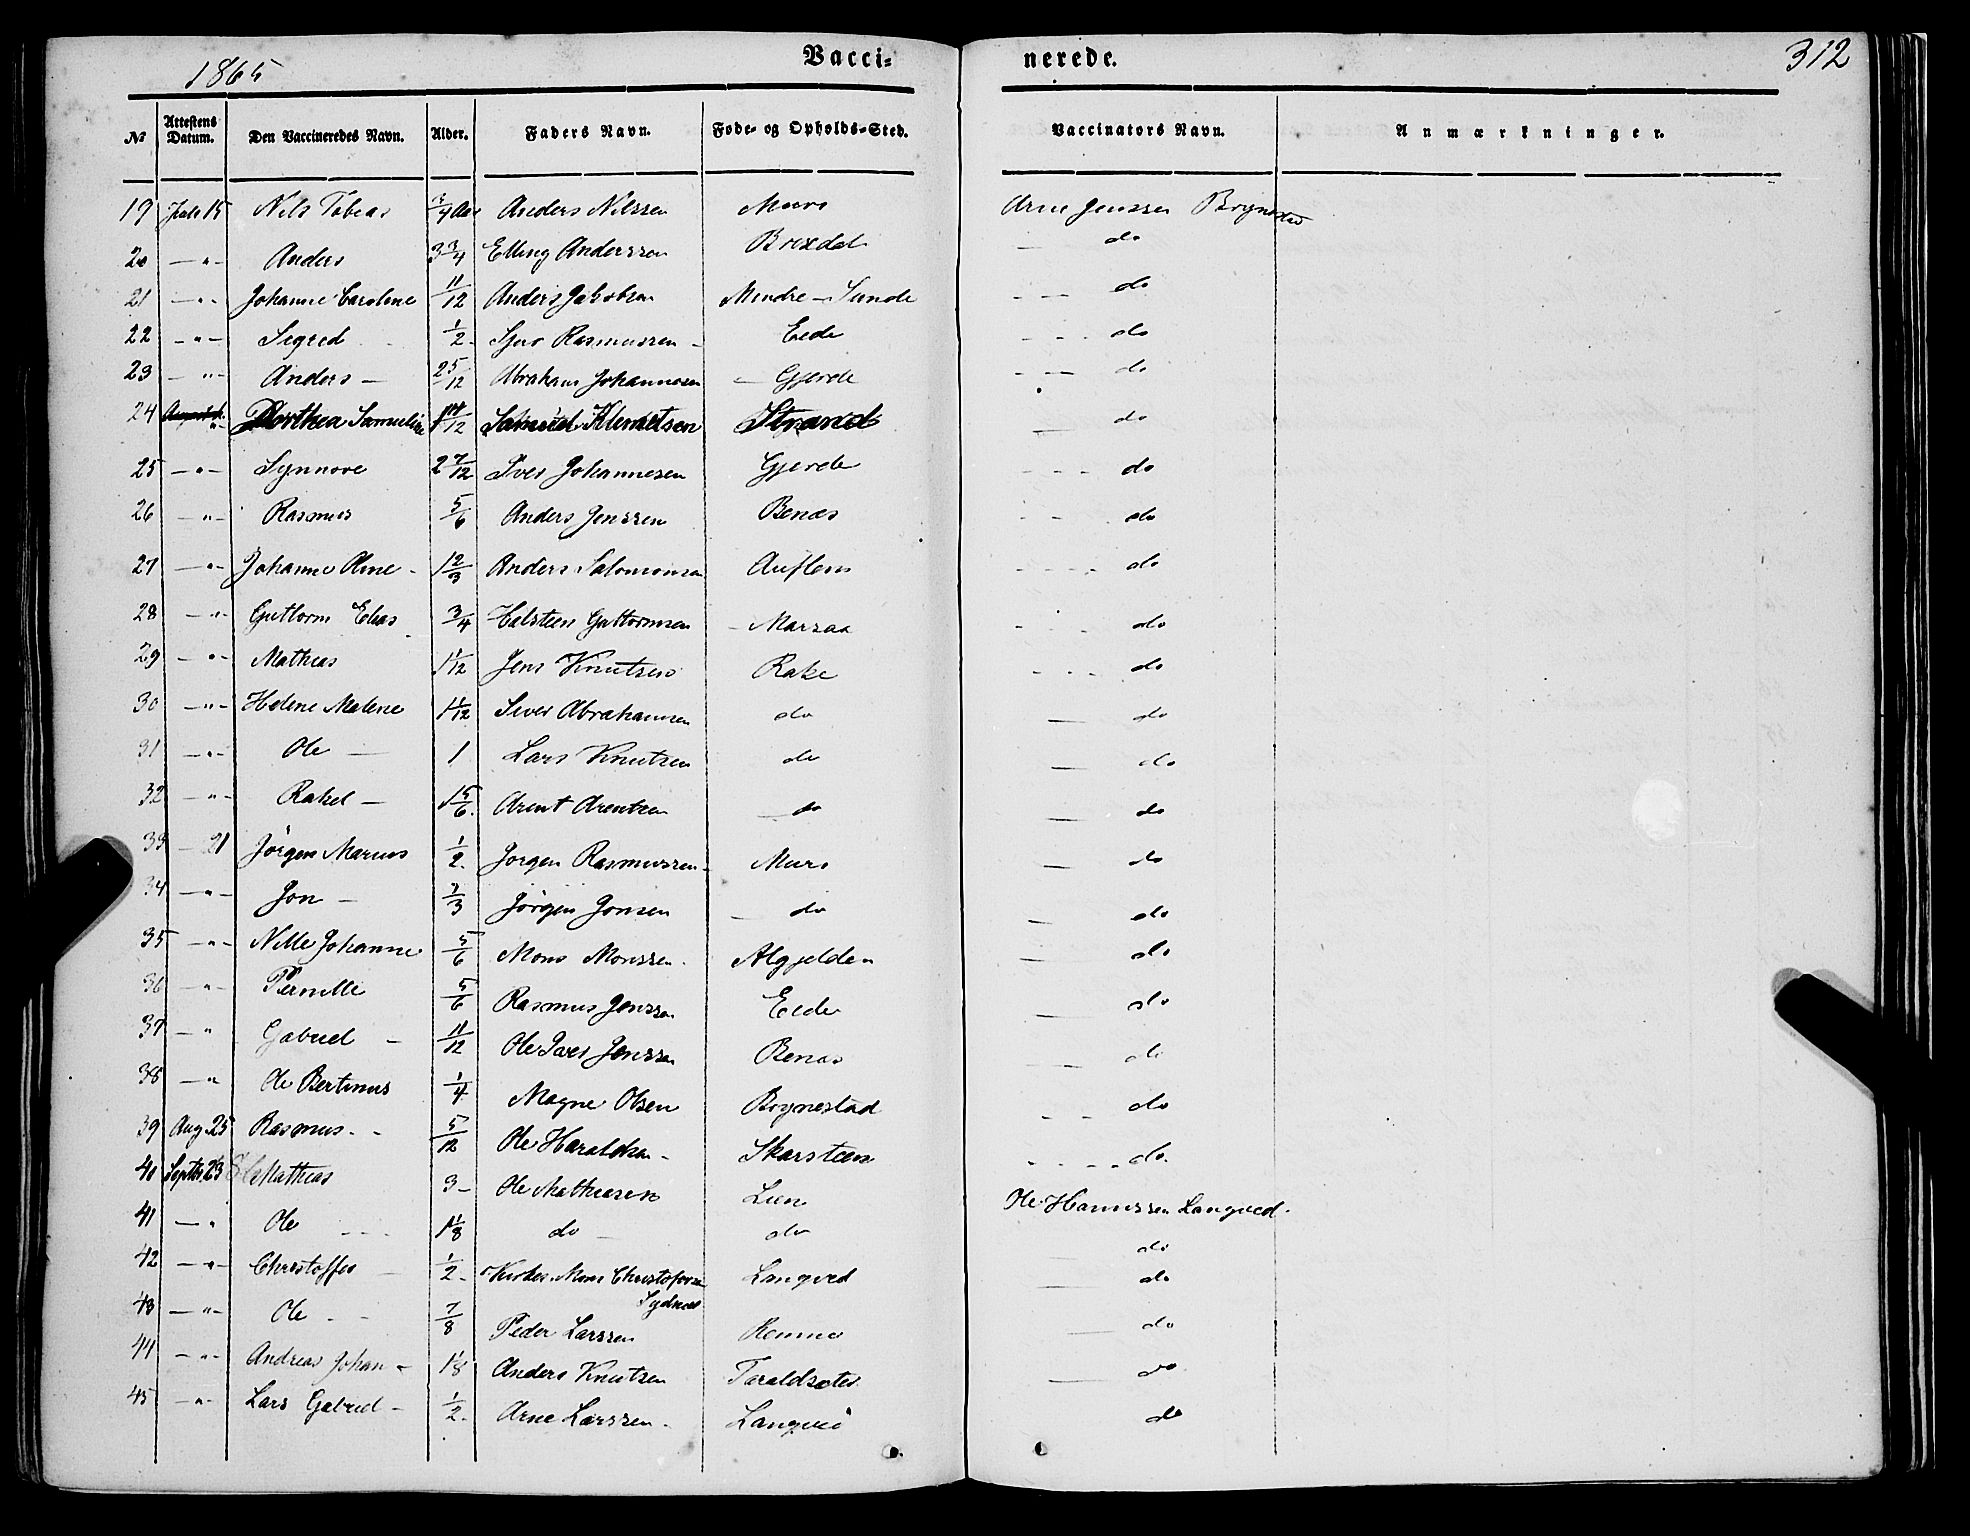 1865 Vacci- nerede. 312
No Attestens Datum. Den Vaccineredes Navn. Alder. Faders Navn. Føde- og Opholds-Sted. Vaccinators Navn. Anmærkninger.
19 Juli 15 Nils Tobias 3/4 Aar Anders Nilssen Muri Arne Jenssen Brynestad
20 — " — Anders 3 3/4 Elling Anderssen Brixdal — do
21 — " — Johanne Caroline 11/12 Anders Jakobsen Mindre-Sunde - - - do
22 — " — Sigrid 1/2 Sjur Rasmussen Eide - - - do
23 — " — Anders — 2 5/12 Abraham Johannesen — Gjerde - — - do
24 " Dorthea Samueline 11/12 Samuel Klemetsen Strand — do
25 — " — Synnove 2 7/12 Iver Johannesen Gjerde - - - do
26 — " — Rasmus 5/6 Anders Jenssen Benæs - - - do
27 — " — Johanne Oline - 1 2/3 Anders Salomonsen Auflem - - - - do
28 — " — Guttorm Elias 3/4 Halsteen Guttormsen — Marsaa - - - do
29 — " — Mathias 1 1/12 Jens Knutsen Rake - - - do
30 — " — Helene Malene 1 1/12 Siver Abrahamsen do — do
31 — " — Ole — 1 Lars Knutsen do — do
32 — " — Rakel — 1 5/6 Arent Arentsen — do — do
33 — 21 Jörgen Marius 1/2 Jorgen Rasmussen Muri — do
34 — " — Jon — 2/3 Jörgen Jonsen — do — do
35 — " — Nille Johanne 5/6 Mons Monssen Algjelden — do
36 — " — Pernille 5/6 Rasmus Jenssen Eide — do
37 — " Gabriel — 11/12 Ole Iver Jenssen Benæs — do
38 — " Ole Bertinus 1/4 Magne Olsen Brynestad - - do
39 Aug 25 Rasmus - - 5/12 Ole Haraldsen - Skarsteen - - - - do
40 Septbr. 23 Mathias 3 — Ole Mathiesen Lien Ole Hanssen Langved.
41 — " Ole 1 1/8 do — do — do
42 — " — Christoffer 1/2 Kirkes. Mons Christofersen Sydnæs Langved — do
43 — " — Ole - - 7/8 Peder Larssen — do
44 — " — Andreas Johan - 1 1/8 Anders Knutsen Taraldsæter — do
45 — " — Lars Gabriel - 1/2 Arne Larssen - Langved do